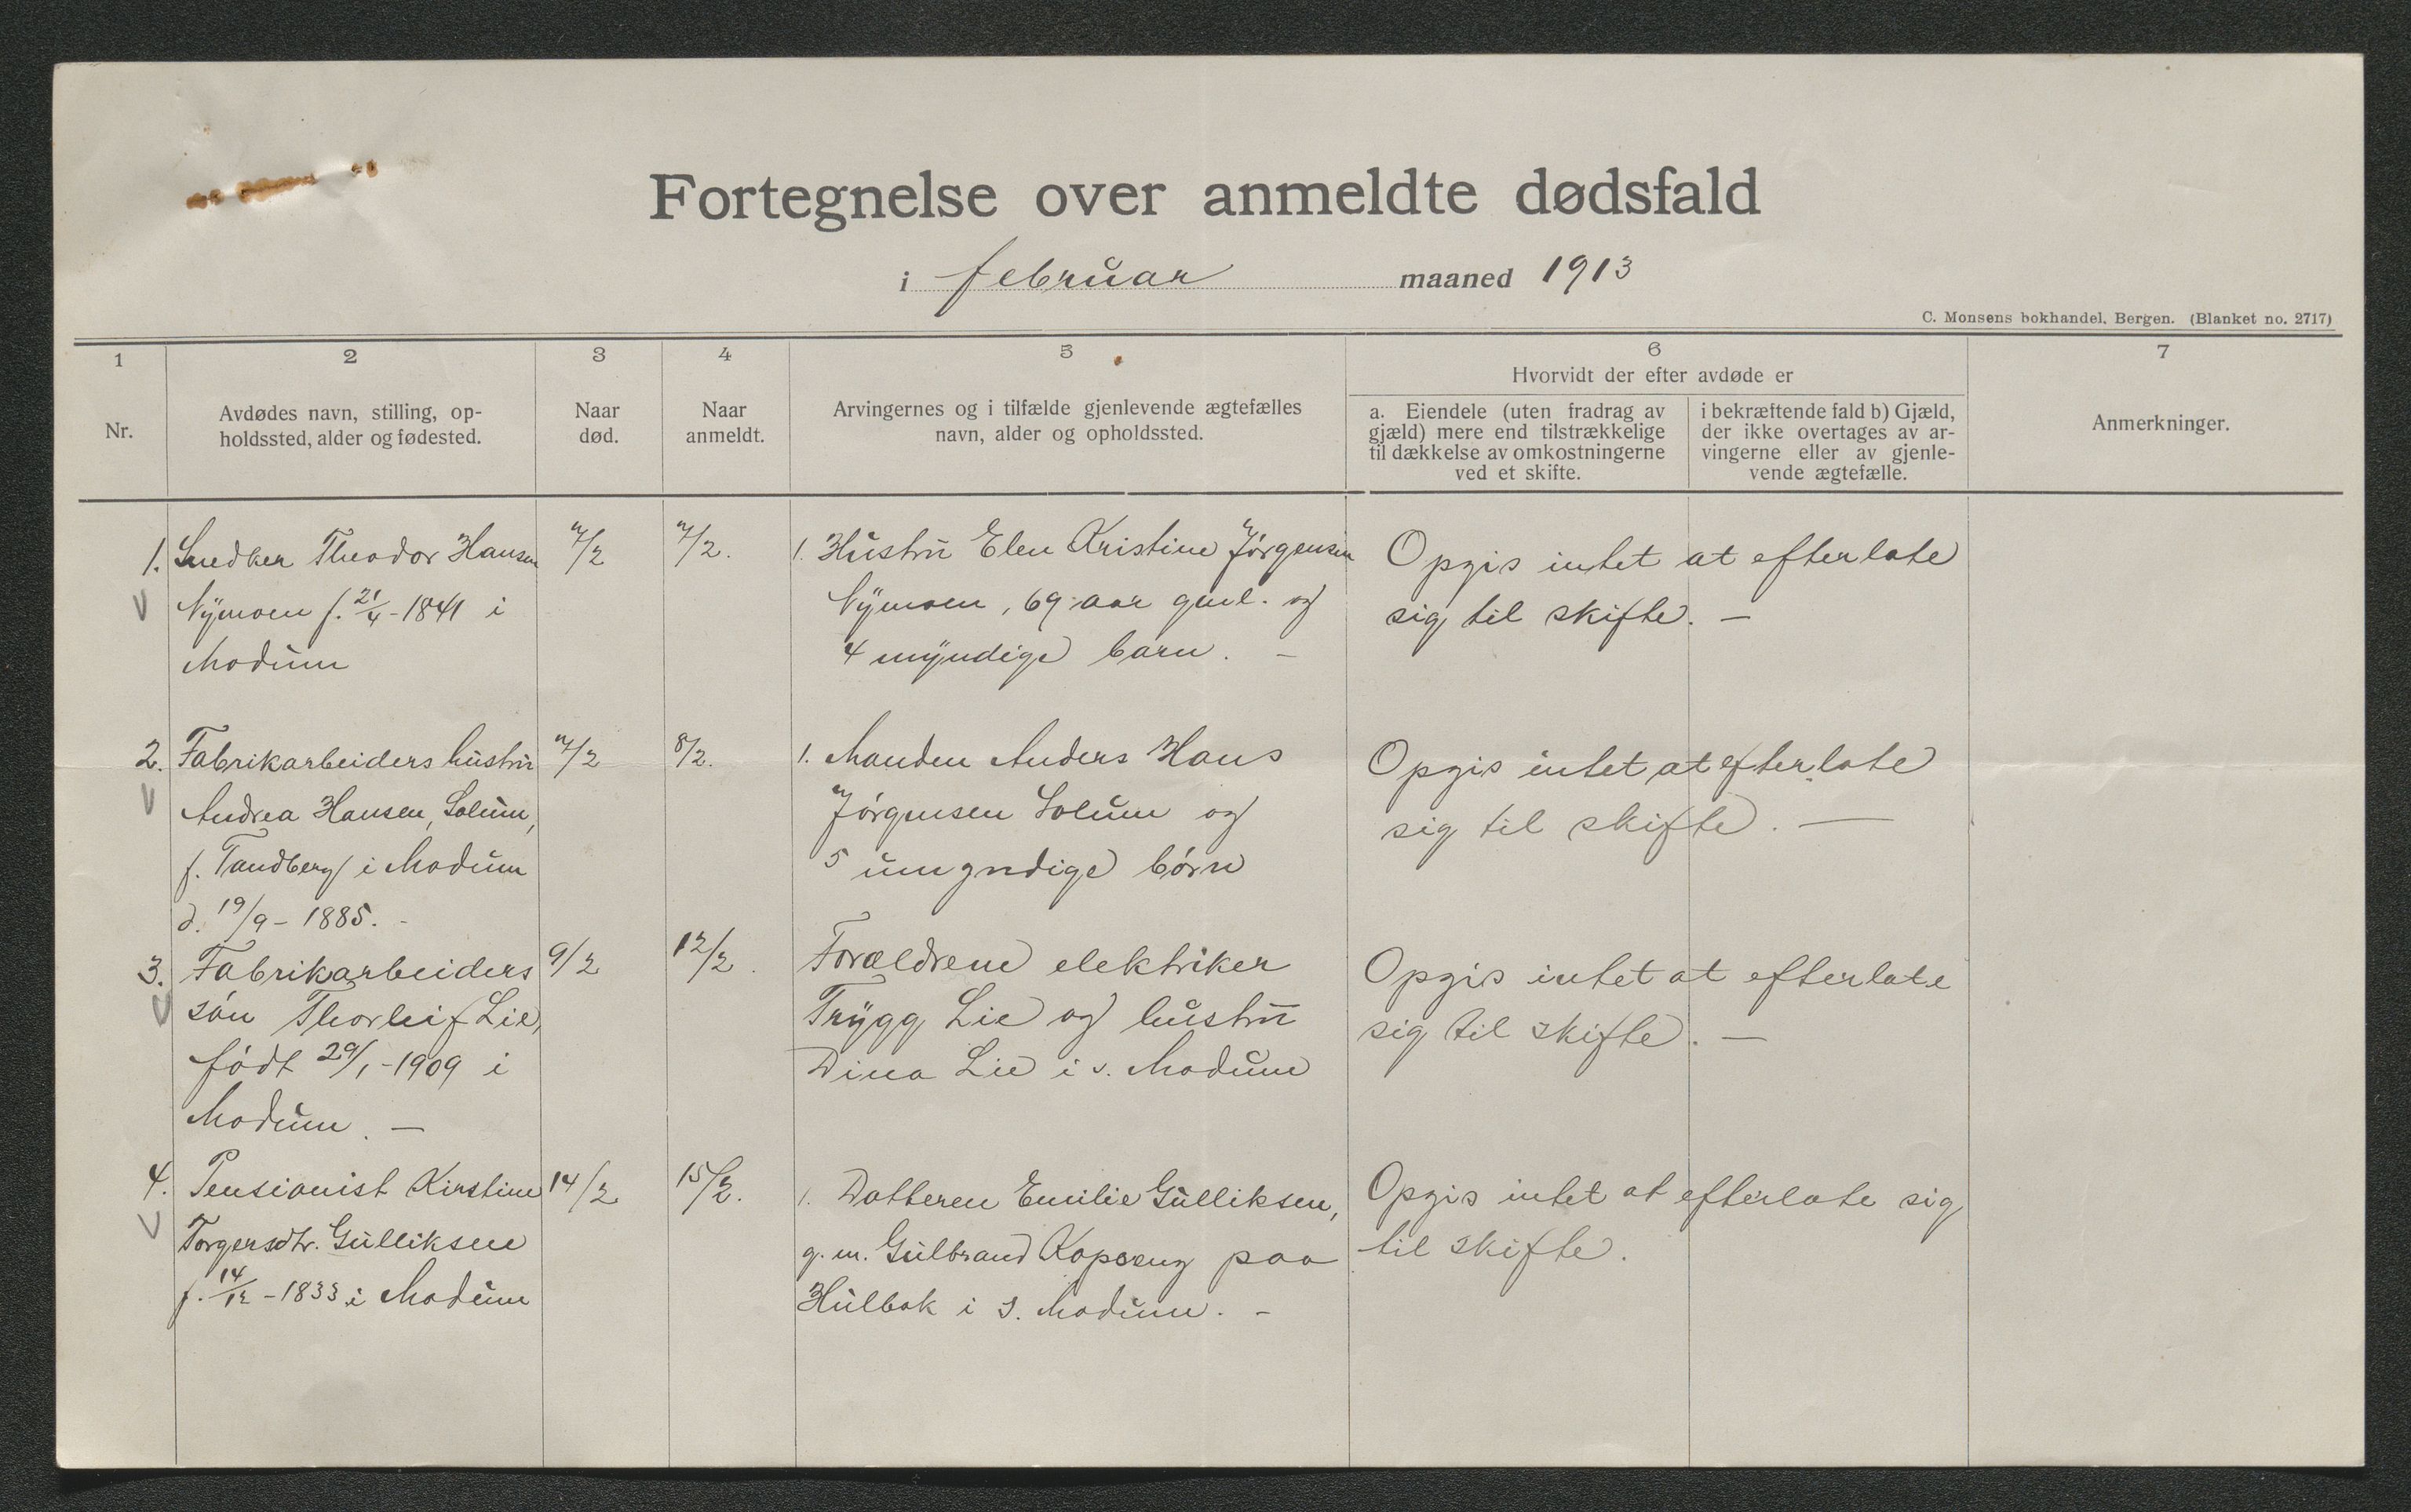 Fortegnelse over anmeldte dødsfald
i februar maaned 1913
C. Monsens bokhandel, Bergen. (Blanket no. 2717)
1
Nr.
2
Avdødes navn, stilling, op-
holdssted, alder og fødested.
3
Naar
død.
4
Naar
anmeldt.
5
Arvingernes og i tilfælde gjenlevende ægtefælles
navn, alder og opholdssted.
6
Hvorvidt der efter avdøde er
a. Eiendele (uten fradrag av
gjæld) mere end tilstrækkelige
til dækkelse av omkostningerne
ved et skifte.
i bekræftende fald b) Gjæld,
der ikke overtages av ar-
vingerne eller av gjenle-
vende ægtefælle.
7
Anmerkninger.
1. Snedker Theodor Hansen
Nymoen f. 21/4-1841 i
Modum
7/2
7/2.
1. Hustru Elen Kristine Jørgensen
Nymoen, 69 aar gml. og
4 myndige barn. -
Opgis intet at efterlate
sig til skifte. -
2. Fabrikarbeiders hustru
Andrea Hansen, Solum,
f. Tandberg i Modum
d. 19/9-1885. -
7/2
8/2.
1. Manden Anders Hans
Jørgensen Solum og
5 umyndige børn
Opgis intet at efterlate
sig til skifte. -
3. Fabrikarbeiders
søn Thorleif Lie,
født 29/1-1909 i
Modum. -
9/2
12/2.
Forældrene elektriker
Trygg Lie og hustru
Dina Lie i s. Modum
Opgis intet at efterlate
sig til skifte. -
4. Pensionist Kirstine
Torgersdtr. Gulliksen
f. 14/12-1833 i Modum
14/2
15/2.
1. Datteren Emilie Gulliksen,
g. m. Gulbrand Kopseng paa
Hulbak i S. Modum. -
Opgis intet at efterlate sig
til skifte.